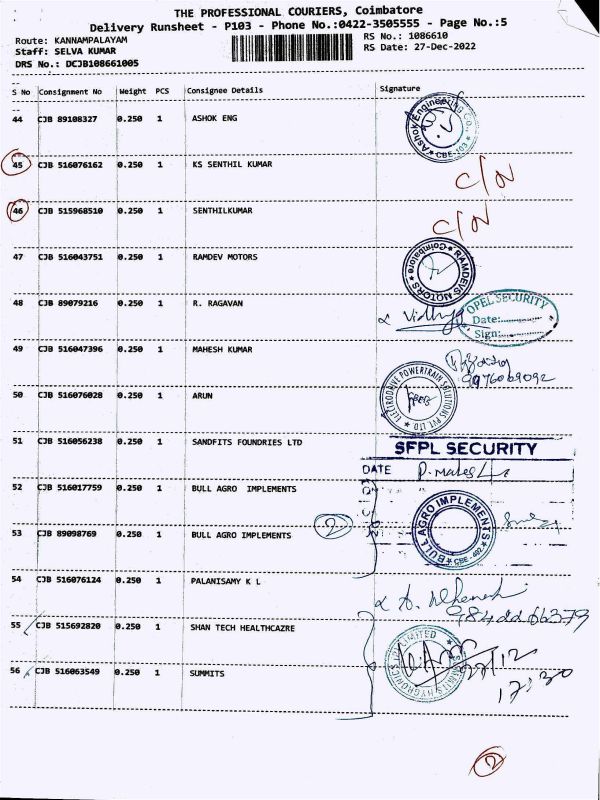 THE PROFESSIONAL COURIERS, Coimbatore
Delivery Runsheet - P103 - Phone No.:0422-3505555 - Page No.:5
Route: KANNAMPALAYAM RS No.: 1086610
Staff: SELVA KUMAR RS Date: 27-Dec-2022
DRS No.: DCJB108661005
S No Consignment No Weight PCS Consignee Details Signature
44 CJB 89108327 0.250 1 ASHOK ENG
Ashok Engineering Co., CBE-103
45 CJB 516076162 0.250 1 KS SENTHIL KUMAR C/N
46 CJB 515968510 0.250 1 SENTHILKUMAR C/N
47 CJB 516043751 0.250 1 RAMDEV MOTORS
RAMDEVS MOTORS Coimbatore
48 CJB 89079216 0.250 1 R. RAGAVAN
OPEL SECURITY
Date:
Sign:
49 CJB 516047396 0.250 1 MAHESH KUMAR
9976069092
50 CJB 516076028 0.250 1 ARUN
ELECTRODRIVE POWERTRAIN SOLUTIONS PVT LTD
51 CJB 516056238 0.250 1 SANDFITS FOUNDRIES LTD
SFPL SECURITY
DATE
52 CJB 516017759 0.250 1 BULL AGRO IMPLEMENTS
BULL AGRO IMPLEMENTS CBE-402
2
53 CJB 89098769 0.250 1 BULL AGRO IMPLEMENTS
54 CJB 516076124 0.250 1 PALANISAMY K L
55 CJB 515692820 0.250 1 SHAN TECH HEALTHCAZRE
56 CJB 516063549 0.250 1 SUMMITS
17:30
2